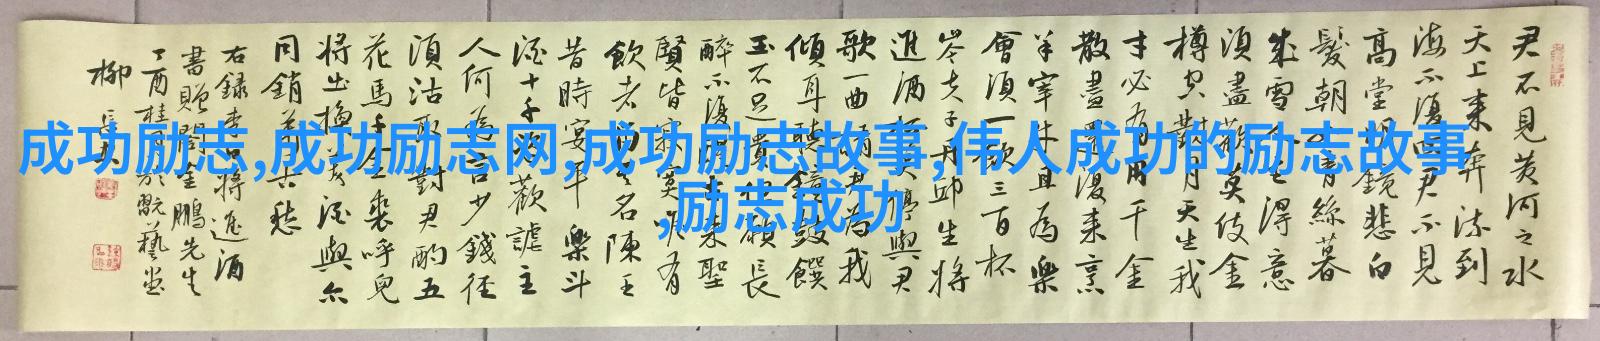 成功励志,成功励志网,成功励志故事,伟人成功的励志故事
,励志成功
君不見黃河之水
天上來奔流到
海不復回君不見
高堂明鏡悲白
髮朝如青絲暮
成雪人生得意
須盡歡莫使金
樽空對月天生我
才必有用千金
散盡還復來烹
羊宰牛且為樂
會須一飲三百杯
岑夫子丹邱生將
進酒杯莫停與君
歌一曲請君為我
傾耳聽鐘鼓饌
玉不足貴但願長
醉不復醒古來聖
賢皆寂寞唯有
飲者留其名陳王
昔時宴平樂斗
酒十千恣歡謔主
人何為言少錢徑
須沽取對君酌五
花馬千金裘呼兒
將出換美酒與尔
同銷萬古愁
右録李白將進酒
書贈閻金鵬先生
丁酉桂月於翫藝堂
柳